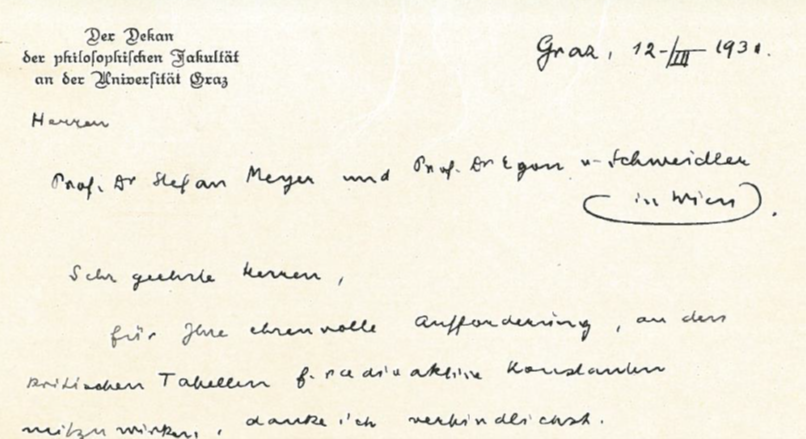 Der Dekan
der philosophischen Fakultät
an der Universität Graz
Graz, 12-/III 1931.
Herren
Prof. Dr Stefan Meyer und Prof. Dr Egon v. Schweidler
in Wien.
Sehr geehrte Herren,
für Ihre ehrenvolle Aufforderung, an den
kritischen Tabellen f. radioaktive Konstanten
mitzuwirken, danke ich verbindlichst.